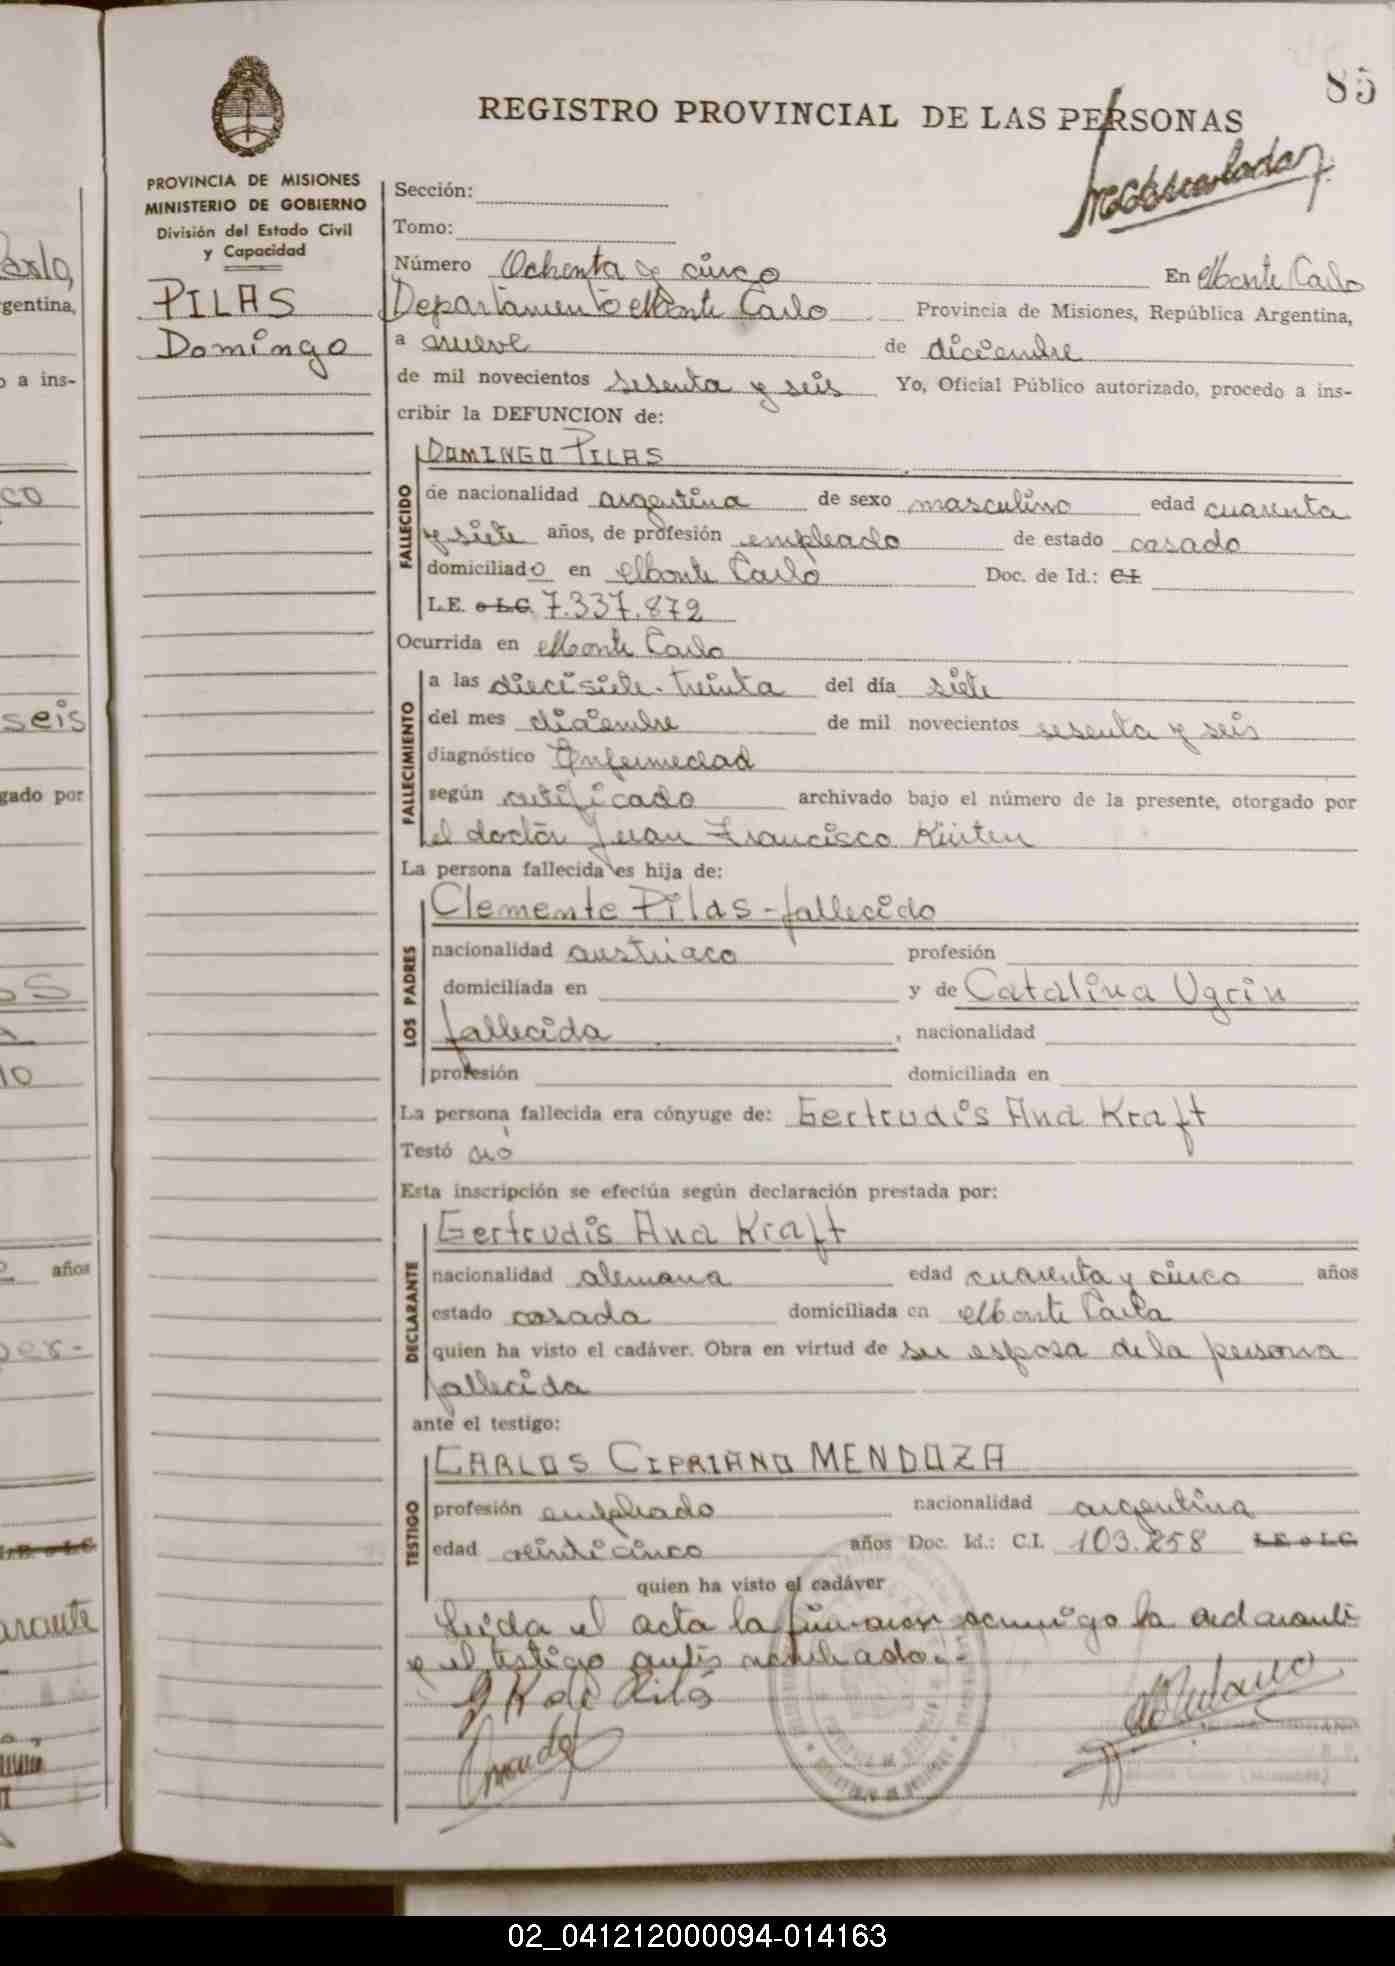 85
REGISTRO PROVINCIAL DE LAS PERSONAS
PROVINCIA DE MISIONES
MINISTERIO DE GOBIERNO
División del Estado Civil
y Capacidad
PILAS
Domingo
Sección:
Tomo:
Número Ochenta y cinco En Monte Carlo
Departamento Monte Carlo Provincia de Misiones, República Argentina,
a nueve de diciembre
de mil novecientos sesenta y seis Yo, Oficial Público autorizado, procedo a ins-
cribir la DEFUNCION de:
DOMINGO PILAS
FALLECIDO
de nacionalidad argentina de sexo masculino edad cuarenta
y siete años, de profesión empleado de estado casado
domiciliado en Monte Carlo Doc. de Id.: CI
L.E. o L.C. 7.337.872
Ocurrida en Monte Carlo
FALLECIMIENTO
a las diecisiete. treinta del día siete
del mes diciembre de mil novecientos sesenta y seis
diagnóstico Enfermedad
según certificado archivado bajo el número de la presente, otorgado por
el doctor Juan Francisco Kürten
La persona fallecida es hija de:
LOS PADRES
Clemente Pilas - fallecido
nacionalidad austriaco profesión
domiciliada en y de Catalina Ugrin
fallecida , nacionalidad
profesión domiciliada en
La persona fallecida era cónyuge de: Gertrudis Ana Kraft
Testó no
Esta inscripción se efectúa según declaración prestada por:
DECLARANTE
Gertrudis Ana Kraft
nacionalidad alemana edad cuarenta y cinco años
estado casada domiciliada en Monte Carlo
quien ha visto el cadáver. Obra en virtud de ser esposa de la persona
fallecida
ante el testigo:
TESTIGO
CARLOS CIPRIANO MENDOZA
profesión empleado nacionalidad argentina
edad veinticinco años Doc. Id.: C.I. 103.258 L.E. o L.C.
quien ha visto el cadáver
Leida el acta la firman conmigo la declarante
y el testigo antes nombrado.-
02_041212000094-014163